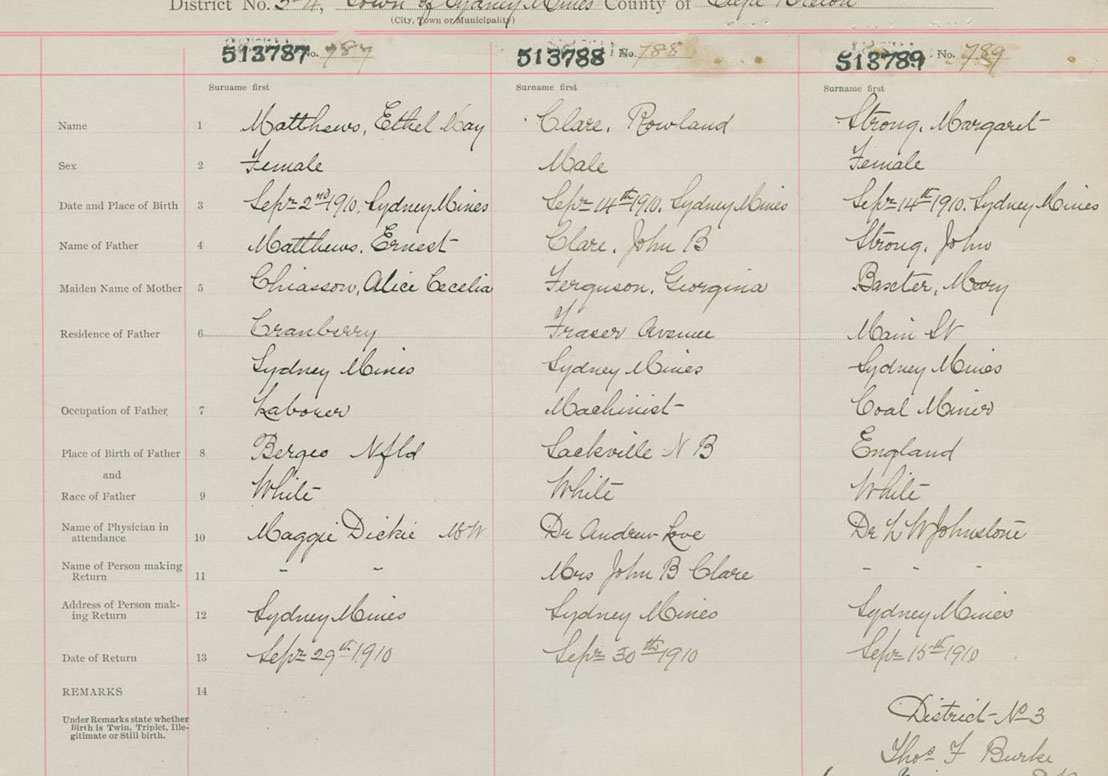 District No. 54, Town of Sydney Mines County of Cape Breton
(City, Town or Municipality)
513787 No. 787 513788 No. 788 513789 No. 789
Surname first Surname first Surname first
Name 1 Matthews, Ethel May Clare, Rowland Strong, Margaret
Sex 2 Female Male Female
Date and Place of Birth 3 Sept 2nd 1910, Sydney Mines Sept 14th 1910. Sydney Mines Sept 14th 1910. Sydney Mines
Name of Father 4 Matthews, Ernest Clare, John B Strong, John
Maiden Name of Mother 5 Chiasson, Alice Cecelia Ferguson, Georgina Baxter, Mary
Residence of Father 6 Cranberry Fraser Avenue Main St
Sydney Mines Sydney Mines Sydney Mines
Occupation of Father 7 Laborer Machinist Coal Miner
Place of Birth of Father 8 Bergeo Nfld Sackville N B England
and
Race of Father 9 White White White
Name of Physician in
attendance 10 Maggie Dickie M W Dr Andrew Love Dr L W Johnstone
Name of Person making
Return 11 " " Mrs John B Clare " " "
Address of Person mak-
ing Return 12 Sydney Mines Sydney Mines Sydney Mines
Date of Return 13 Sept 29th 1910 Sept 30th 1910 Sept 15th 1910
REMARKS 14
Under Remarks state whether
Birth is Twin, Triplet, Ille-
gitimate or Still birth.
District No 3
Thos F Burke